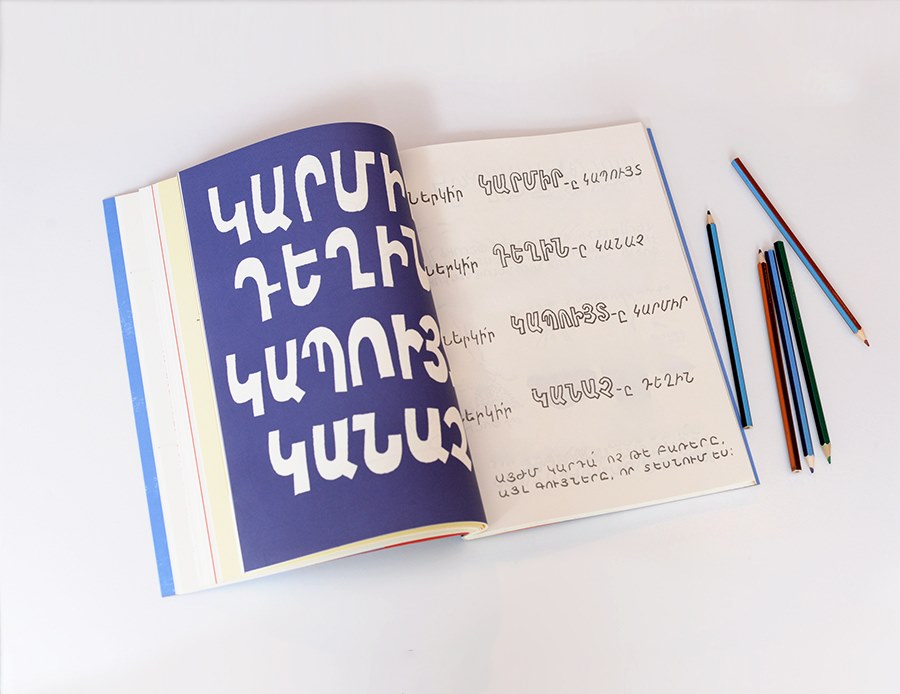 ԿԱՐՄԻ
ԴԵՂԻՆ
ԿԱՊՈՒՅ
ԿԱՆԱՉ
Ներկի՛ր ԿԱՐՄԻՐ-ը ԿԱՊՈՒՅՏ
Ներկի՛ր ԴԵՂԻՆ-ը ԿԱՆԱՉ
Ներկի՛ր ԿԱՊՈՒՅՏ-ը ԿԱՐՄԻՐ
Ներկի՛ր ԿԱՆԱՉ-ը ԴԵՂԻՆ
ԱՅԺՄ ԿԱՐԴԱ՛ ՈՉ ԹԵ ԲԱՌԵՐԸ,
ԱՅԼ ԳՈՒՅՆԵՐԸ, ՈՐ ՏԵՍՆՈՒՄ ԵՍ: